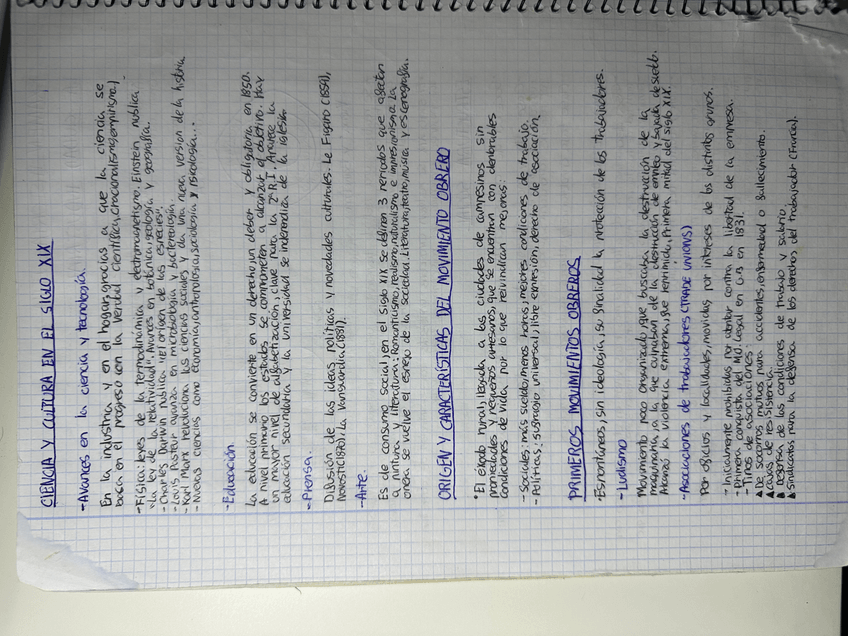 CIENCIA Y CULTURA EN EL SIGLO XIX
-Avances en la ciencia y tecnología
En la industria y en el hogar, gracias a que la ciencia se
basa en el progreso con la verdad científica, (racionalismo y empirismo)
-Física: leyes de la termodinámica y electromagnetismo. Einstein publica
"La ley de la relatividad". Avances en botánica, geología y geografía.
-Charles Darwin publica "el origen de las especies".
-Louis Pasteur avanza en microbiología y bacteriología.
-Karl Marx revoluciona las ciencias sociales y da una nueva versión de la historia
-Nuevas ciencias como economía, antropología, sociología y psicología...
-Educación
La educación se convierte en un derecho, un deber y obligatoria en 1850.
A nivel primario los estados se comprometen a alcanzar el objetivo. Hay
un mayor nivel de alfabetización, clave para la 2ª R.I. Aparece la
educación secundaria y la universidad se independiza de la iglesia.
-Prensa.
Difusión de las ideas políticas y novedades culturales. Le Figaro (1854),
(1870), La Vanguardia (1881).
-Arte.
Es de consumo social, en el siglo XIX se definen 3 periodos que afectan
a pintura y literatura: Romanticismo, realismo/naturalismo e impresionismo. La
ópera se vuelve el espejo de la sociedad, literatura, teatro, música y escenografía.
ORIGEN Y CARACTERÍSTICAS DEL MOVIMIENTO OBRERO
*El éxodo rural, llegada a las ciudades de campesinos sin
propiedades y pequeños artesanos, que se encuentran con
condiciones de vida por lo que reivindican mejoras:
-Sociales: más sueldo, menos horas, mejores condiciones de trabajo.
-Políticas: sufragio universal, libre expresión, derecho de asociación.
PRIMEROS MOVIMIENTOS OBREROS
·Espontáneos, sin ideología, su finalidad la protección de los trabajadores.
-Ludismo
Movimiento poco organizado que buscaba la destrucción de la
maquinaria a la que culpaban de la destrucción de empleo y bajada de sueldo.
Alcanzó la violencia extrema, fue reprimida, Primera mitad del siglo XIX.
-Asociaciones de trabajadores (TRADE UNIONS)
Por oficios y localidades, movidas por intereses de los distintos grupos.
-Inicialmente prohibidas por atentar contra la libertad de la empresa.
-Primera conquista del MO legal en G.B en 1831.
-Tipos de asociaciones:
▲De socorros mutuos para accidentes, enfermedad o fallecimiento.
▲Cajas de resistencia.
▲Defensa de las condiciones de trabajo y salario.
▲Sindicatos para la defensa de los derechos del trabajador (Francia).